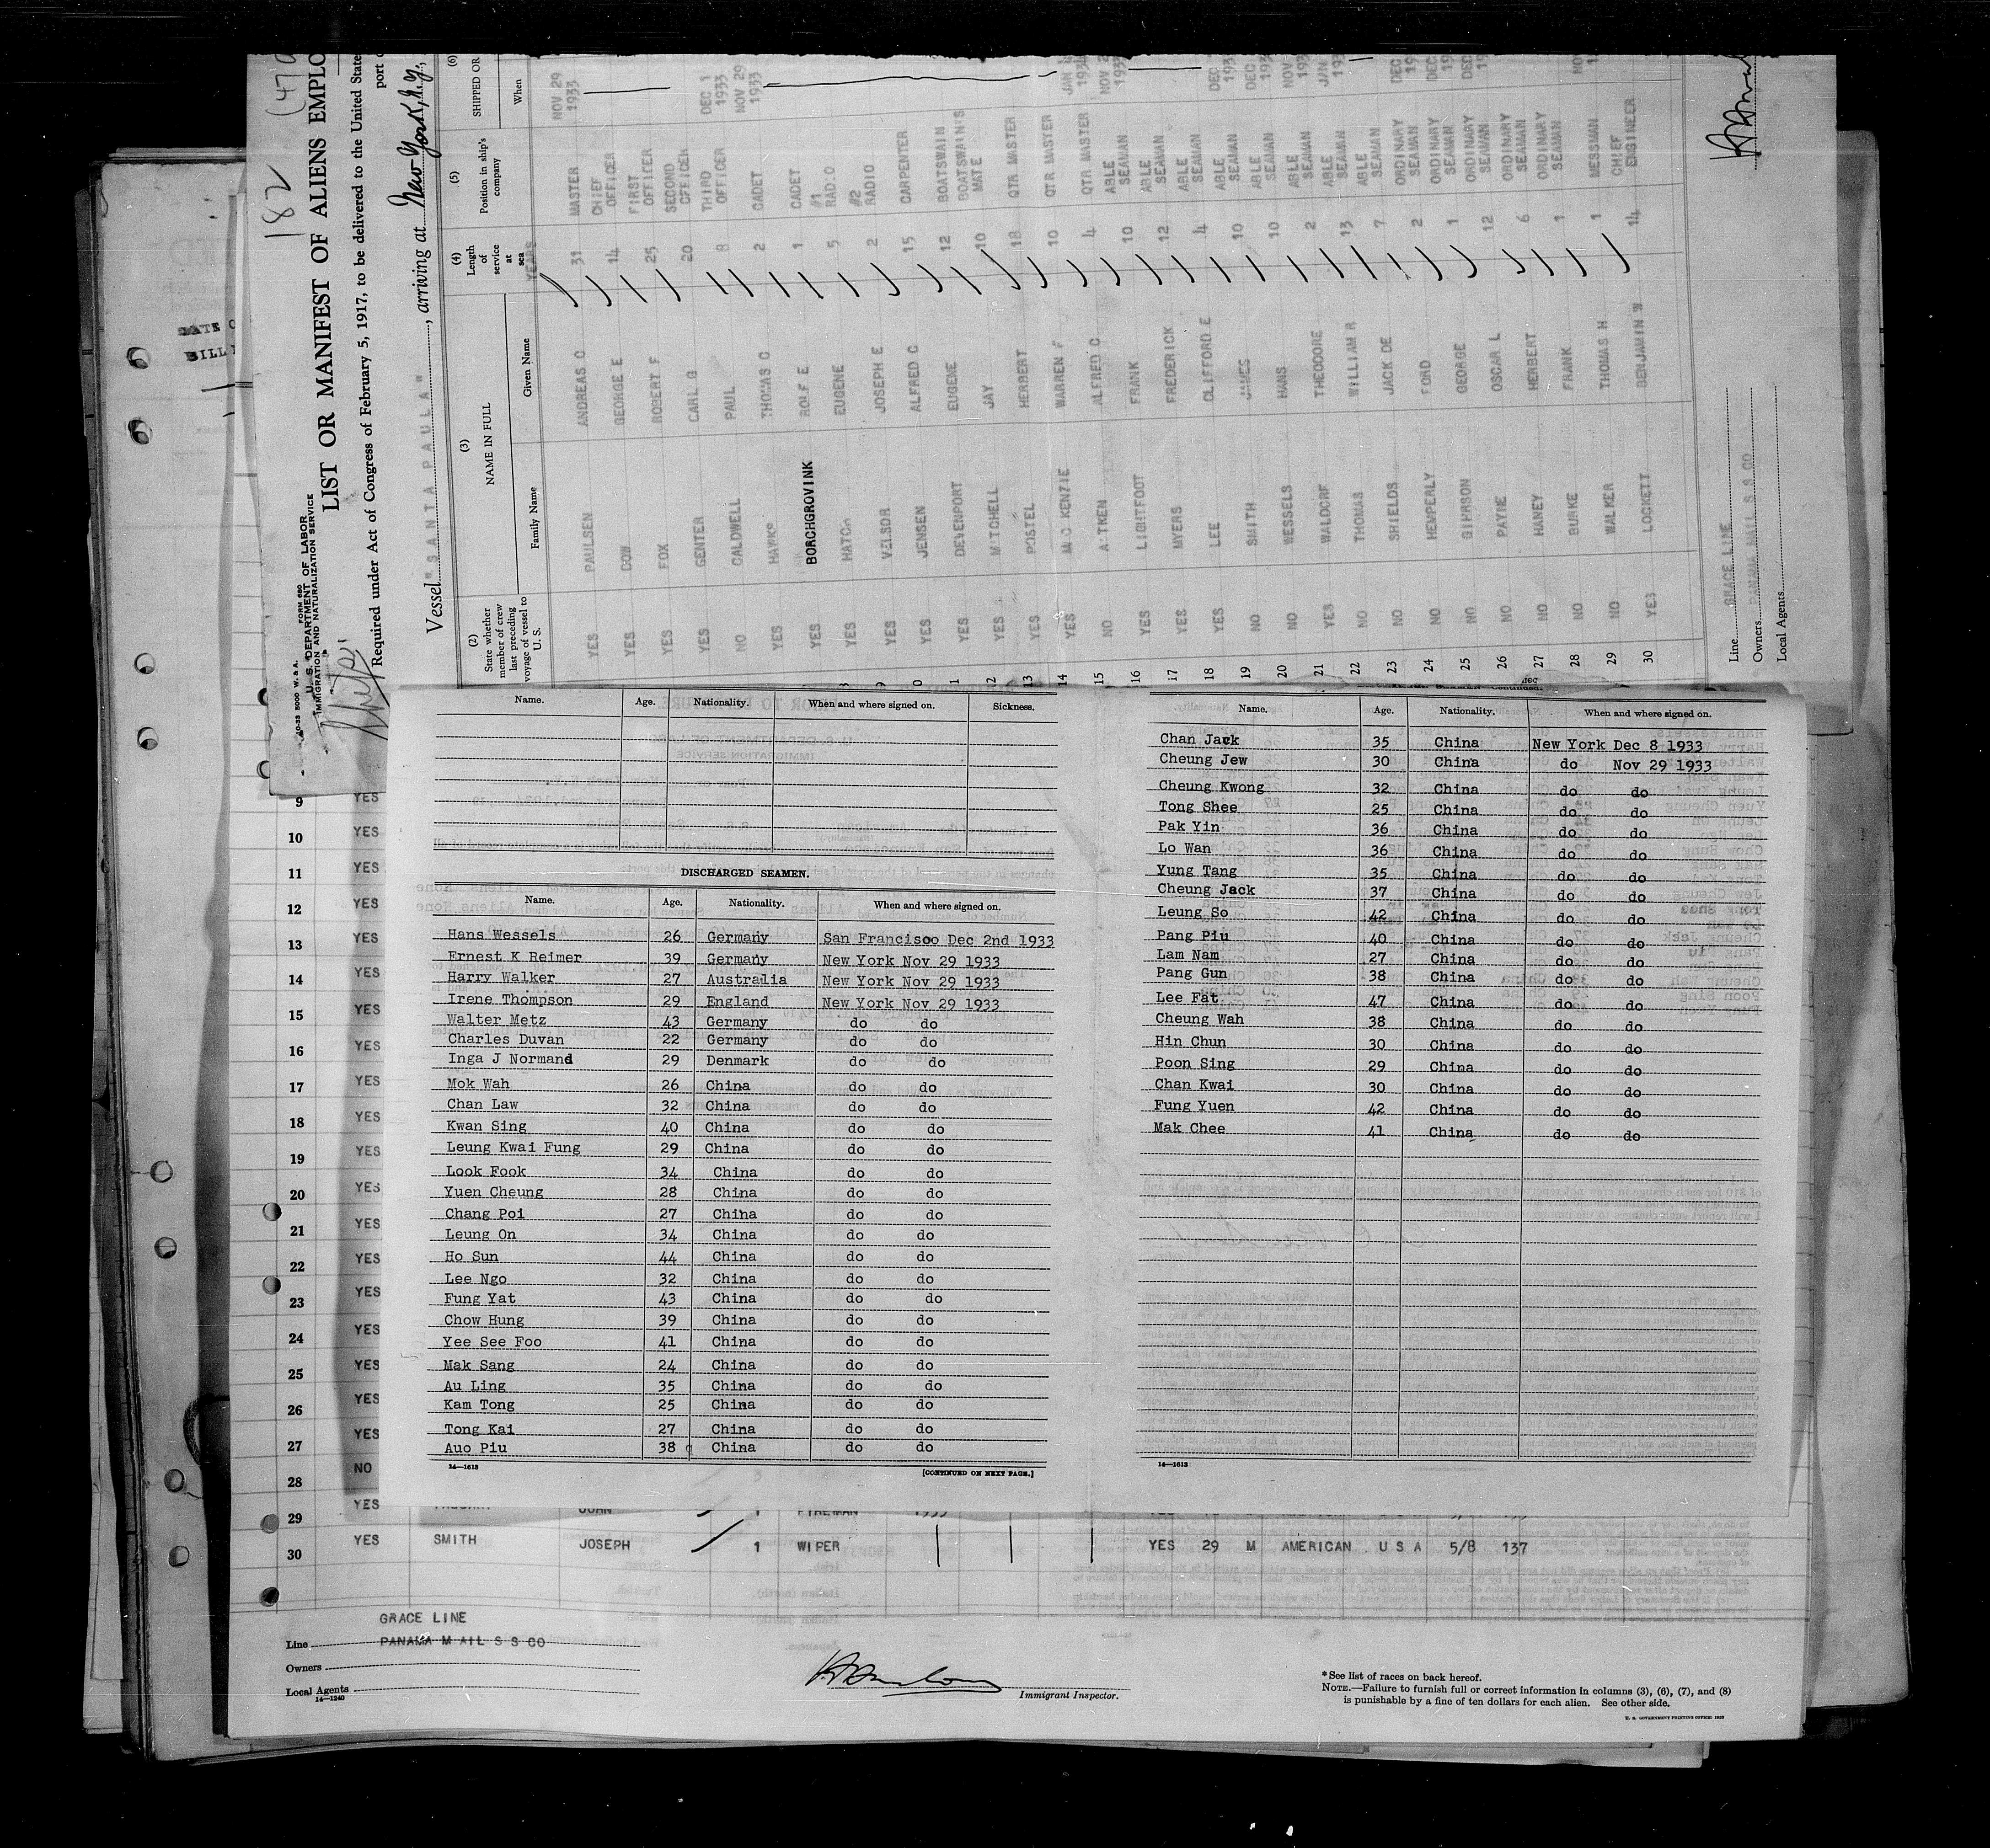 182
(479
10-33 5000 W. & A. FORM 680
U. S. DEPARTMENT OF LABOR
IMMIGRATION AND NATURALIZATION SERVICE
LIST OR MANIFEST OF ALIENS EMPLO
Required under Act of Congress of February 5, 1917, to be delivered to the United State
port
Vessel "SANTA PAULA", arriving at New York, N.Y.,
(2) State whether member of crew last preceding voyage of vessel to U. S.
(3) NAME IN FULL
Family Name Given Name
(4) Length of service at sea
YEARS
(5) Position in ship's company
(6) SHIPPED OR
When
YES PAULSEN ANDREAS C 31 MASTER NOV 29 1933
YES DOW GEORGE E 14 CHIEF OFFICER
YES FOX ROBERT F 25 FIRST OFFICER
YES GENTER CARL G 20 SECOND OFFICER
NO CALDWELL PAUL 8 THIRD OFFICER DEC 1 1933
YES HAWKS THOMAS C 2 CADET NOV 29 1933
YES BORCHGROVINK ROLF E 1 CADET
YES HATCH EUGENE 5 #1 RADIO
YES VELSOR JOSEPH E 2 #2 RADIO
YES JENSEN ALFRED C 15 CARPENTER
YES DEVENPORT EUGENE 12 BOATSWAIN
YES MITCHELL JAY 10 BOATSWAIN'S MATE
YES POSTEL HERBERT 18 QTR MASTER
14 YES MC KENZIE WARREN F 10 QTR MASTER
15 NO AITKEN ALFRED C 4 QTR MASTER
16 YES LIGHTFOOT FRANK 10 ABLE SEAMAN
17 YES MYERS FREDERICK 12 ABLE SEAMAN
18 YES LEE CLIFFORD E 4 ABLE SEAMAN
19 NO SMITH JAMES 10 ABLE SEAMAN
20 NO WESSELS HANS 10 ABLE SEAMAN
21 YES WALDORF THEODORE 2 ABLE SEAMAN
22 NO THOMAS WILLIAM R 13 ABLE SEAMAN
23 NO SHIELDS JACK DE 7 ABLE SEAMAN
24 NO HEMPERLY FORD 2 ORDINARY SEAMAN
25 NO GIHRSON GEORGE 1 ORDINARY SEAMAN
26 NO PAYNE OSCAR L 12 ORDINARY SEAMAN
27 NO HANEY HERBERT 6 ORDINARY SEAMAN
28 NO BURKE FRANK 1 ORDINARY SEAMAN
29 NO WALKER THOMAS H 1 MESSMAN
30 YES LOCKETT BENJAMIN W 14 CHIEF ENGINEER
Line GRACE LINE
Owners PANAMA MAIL S S CO
Local Agents
Name. Age. Nationality. When and where signed on. Sickness.
DISCHARGED SEAMEN.
Name. Age. Nationality. When and where signed on.
Hans Wessels 26 Germany San Francisco Dec 2nd 1933
Ernest K Reimer 39 Germany New York Nov 29 1933
Harry Walker 27 Australia New York Nov 29 1933
Irene Thompson 29 England New York Nov 29 1933
Walter Metz 43 Germany do do
Charles Duvan 22 Germany do do
Inga J Normand 29 Denmark do do
Mok Wah 26 China do do
Chan Law 32 China do do
Kwan Sing 40 China do do
Leung Kwai Fung 29 China do do
Look Fook 34 China do do
Yuen Cheung 28 China do do
Chang Poi 27 China do do
Leung On 34 China do do
Ho Sun 44 China do do
Lee Ngo 32 China do do
Fung Yat 43 China do do
Chow Hung 39 China do do
Yee See Foo 41 China do do
Mak Sang 24 China do do
Au Ling 35 China do do
Kam Tong 25 China do do
Tong Kai 27 China do do
Auo Piu 38 China do do
14—1613
[CONTINUED ON NEXT PAGE.]
Name. Age. Nationality. When and where signed on.
Chan Jack 35 China New York Dec 8 1933
Cheung Jew 30 China do Nov 29 1933
Cheung Kwong 32 China do do
Tong Shee 25 China do do
Pak Yin 36 China do do
Lo Wan 36 China do do
Yung Tang 35 China do do
Cheung Jack 37 China do do
Leung So 42 China do do
Pang Piu 40 China do do
Lam Nam 27 China do do
Pang Gun 38 China do do
Lee Fat 47 China do do
Cheung Wah 38 China do do
Hin Chun 30 China do do
Poon Sing 29 China do do
Chan Kwai 30 China do do
Fung Yuen 42 China do do
Mak Chee 41 China do do
14—1613
9 YES
10 YES
11 YES
12 YES
13 YES
14 YES
15 YES
16 YES
17 YES
18 YES
19 YES
20 YES
21 YES
22 YES
23 YES
24 YES
25 YES
26 YES
27 YES
28 NO
29 YES JOHN 1 FIREMAN 1933
30 YES SMITH JOSEPH 1 WIPER YES 29 M AMERICAN U S A 5/8 137
GRACE LINE
Line PANAMA MAIL S S CO
Owners
Local Agents
14—1240
Immigrant Inspector.
*See list of races on back hereof.
NOTE.—Failure to furnish full or correct information in columns (3), (6), (7), and (8)
is punishable by a fine of ten dollars for each alien. See other side.